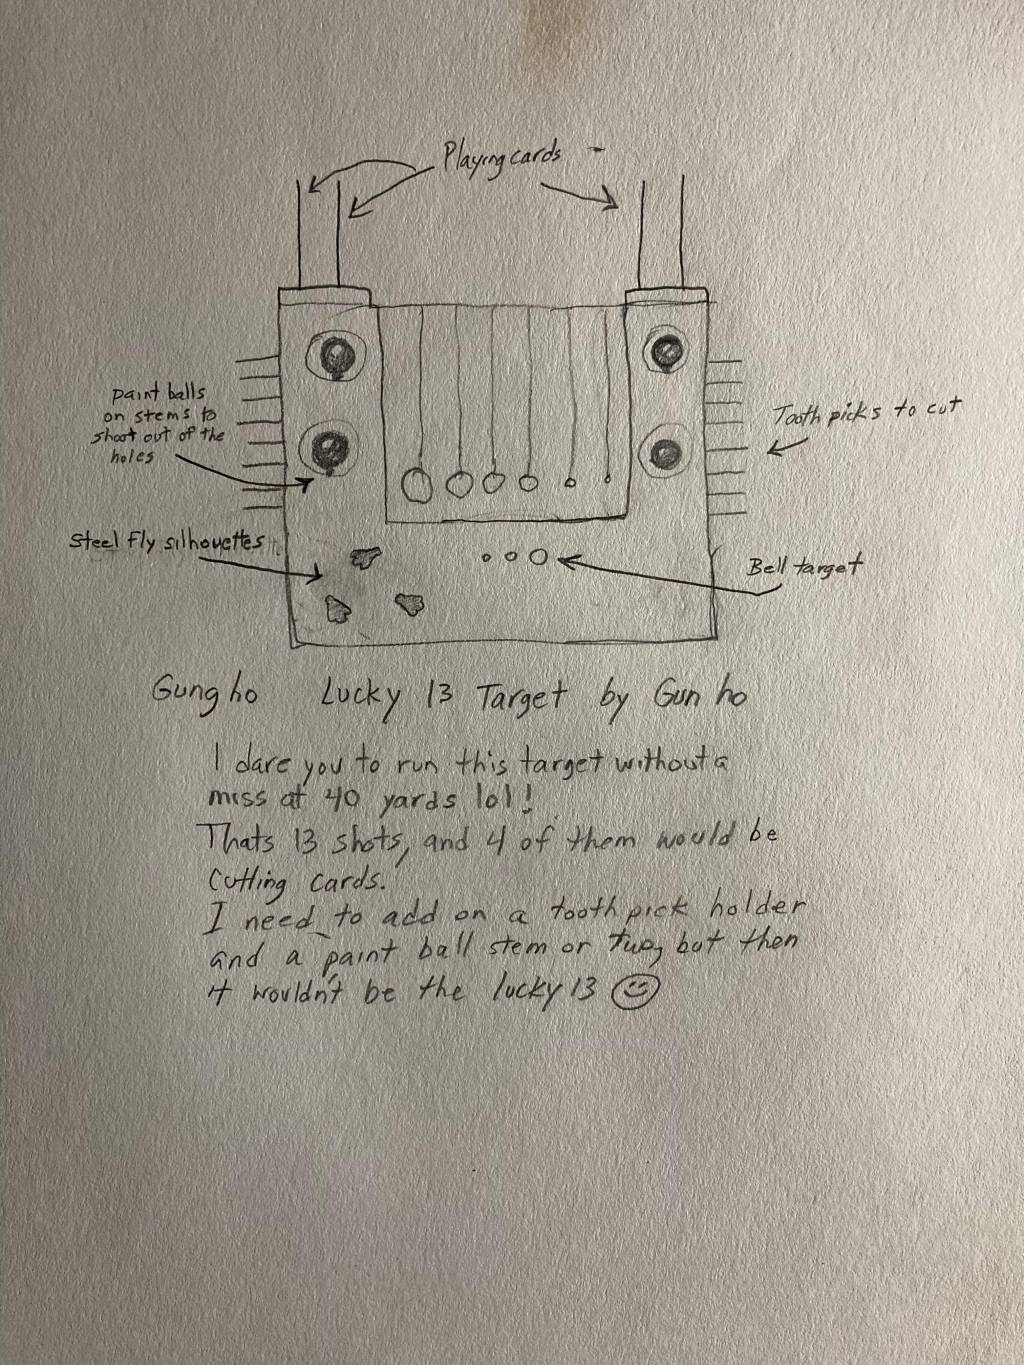 Playing cards -
paint balls
on stems to
shoot out of the
holes
Tooth picks to cut
Steel Fly silhouettes
Bell target
Gung ho Lucky 13 Target by Gun ho
I dare you to run this target without a
miss at 40 yards lol!
Thats 13 shots, and 4 of them would be
cutting cards.
I need to add on a tooth pick holder
and a paint ball stem or two, but then
it wouldn't be the lucky 13